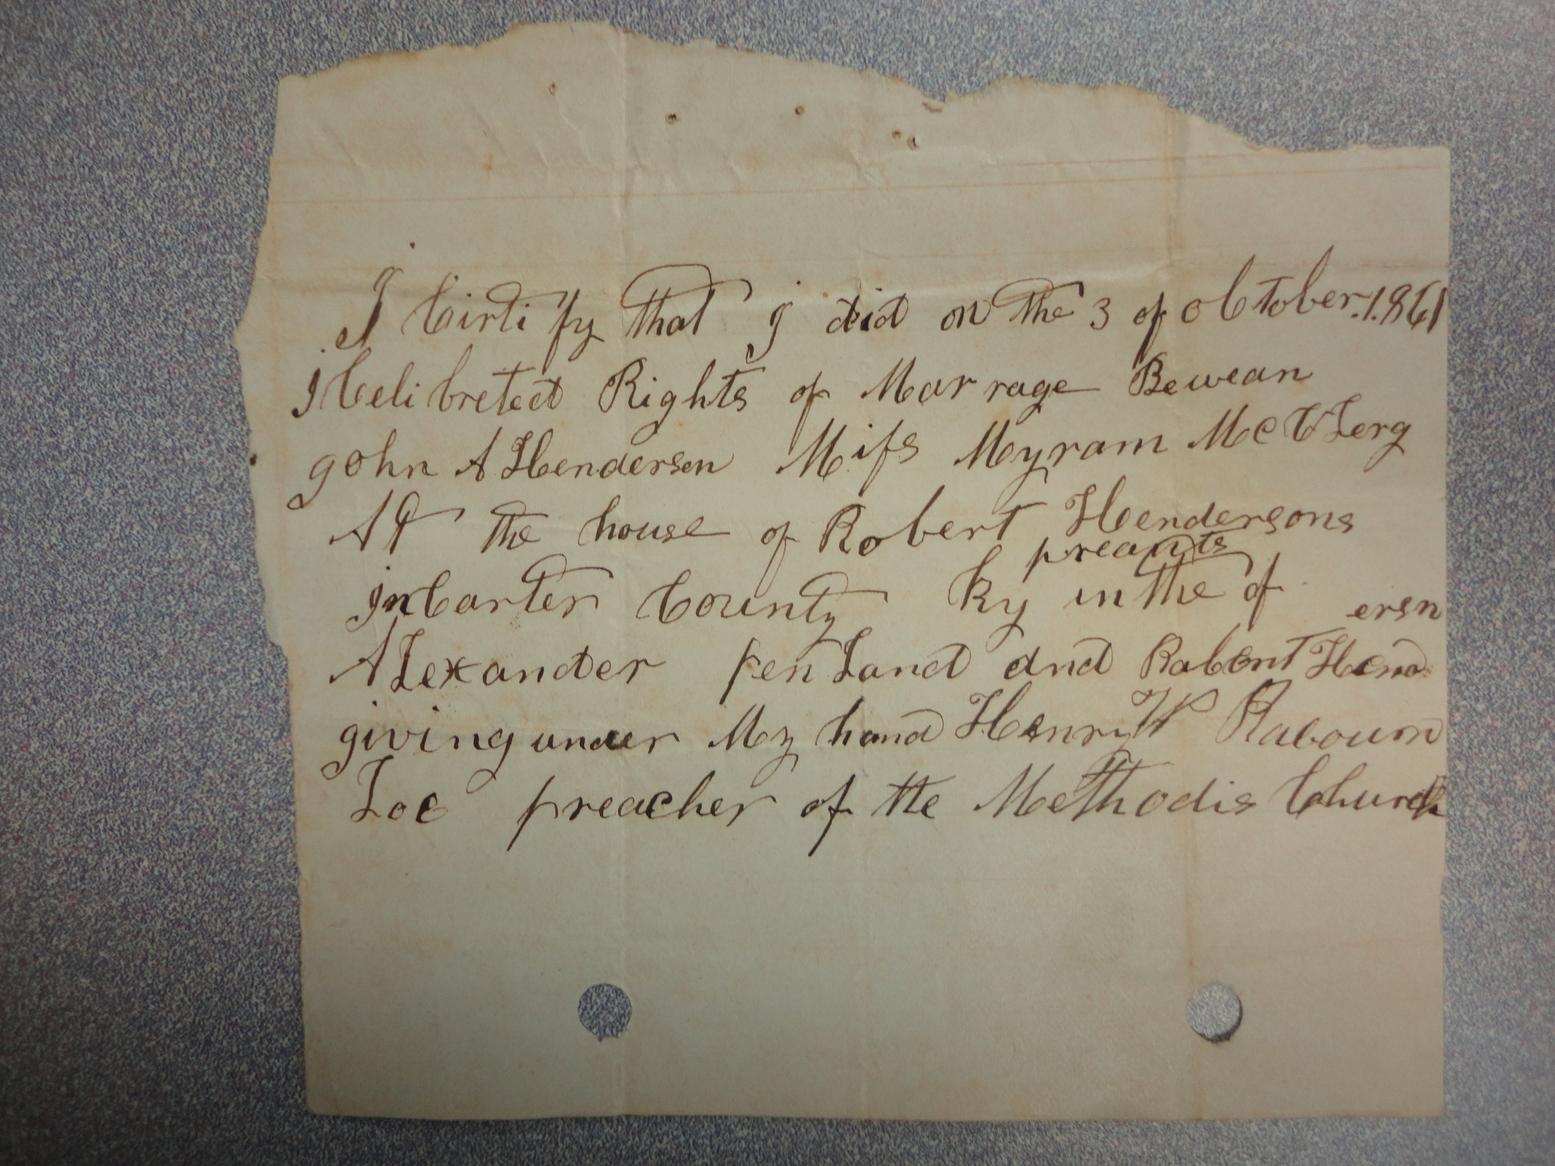 I Cirtify that I did on the 3 of October. 1.861
I Celibreted Rights of Marrage Bewean
John A Hendersen Miss Myram McClerg
At the house of Robert Hendersons
preants
In Carter County Ky in the of
ersn
Alexander penland and Rabert Hend
giving under My hand Henry W Rabourn
Loc preacher of the Methodis Church